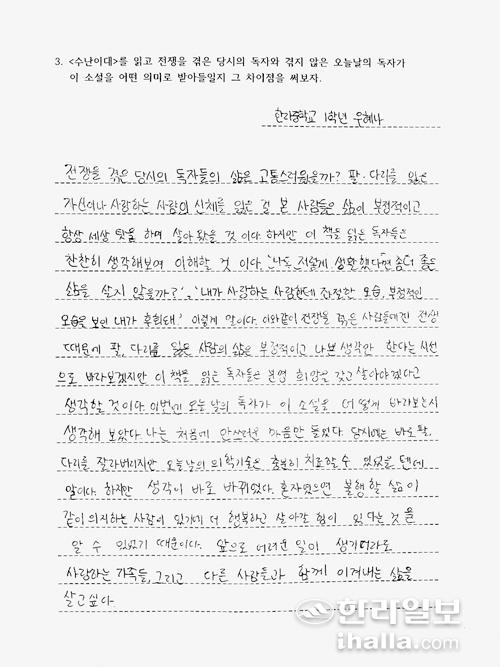 3. <수난이대>를 읽고 전쟁을 겪은 당시의 독자와 겪지 않은 오늘날의 독자가
이 소설을 어떤 의미로 받아들일지 그 차이점을 써보자.
한라중학교 1학년 우혜나
전쟁을 겪은 당시의 독자들의 삶은 고통스러웠을까? 팔·다리를 잃은
자신이나 사랑하는 사람의 신체를 잃은 걸 본 사람들은 삶이 부정적이고
항상 세상 탓을 하며 살아 왔을 것 이다. 하지만 이 책을 읽은 독자들은
찬찬히 생각해보며 이해할 것 이다. '나도 저렇게 생활했다면 좀 더 좋은
삶을 살지 않을까?', '내가 사랑하는 사람한테 좌절한 모습, 부정적인
모습을 보인 내가 후회돼.' 이렇게 말이다. 이와같이 전쟁을 겪은 사람들에겐 전쟁
때문에 팔, 다리를 잃은 사람의 삶은 부정적이고 나쁜 생각만 한다는 시선
으로 바라보겠지만 이 책을 읽은 독자들은 분명 희망을 갖고 살아야겠다고
생각할 것이다. 이번엔 오늘날의 독자가 이 소설을 어떻게 바라보는지
생각해 보았다. 나는 처음에 안쓰러운 마음만 들었다. 당시에는 바로 팔,
다리를 잘라버리지만 오늘날의 의학기술은 충분히 치료할 수 있었을 텐데
말이다. 하지만 생각이 바로 바뀌었다. 혼자였으면 불행할 삶이
같이 의지하는 사람이 있기에 더 행복하고 살아갈 힘이 있다는 것을
알 수 있었기 때문이다. 앞으로 어려운 일이 생기더라도
사랑하는 가족들, 그리고 다른 사람들과 함께 이겨내는 삶을
살고싶다.
한라일보
ihalla.com